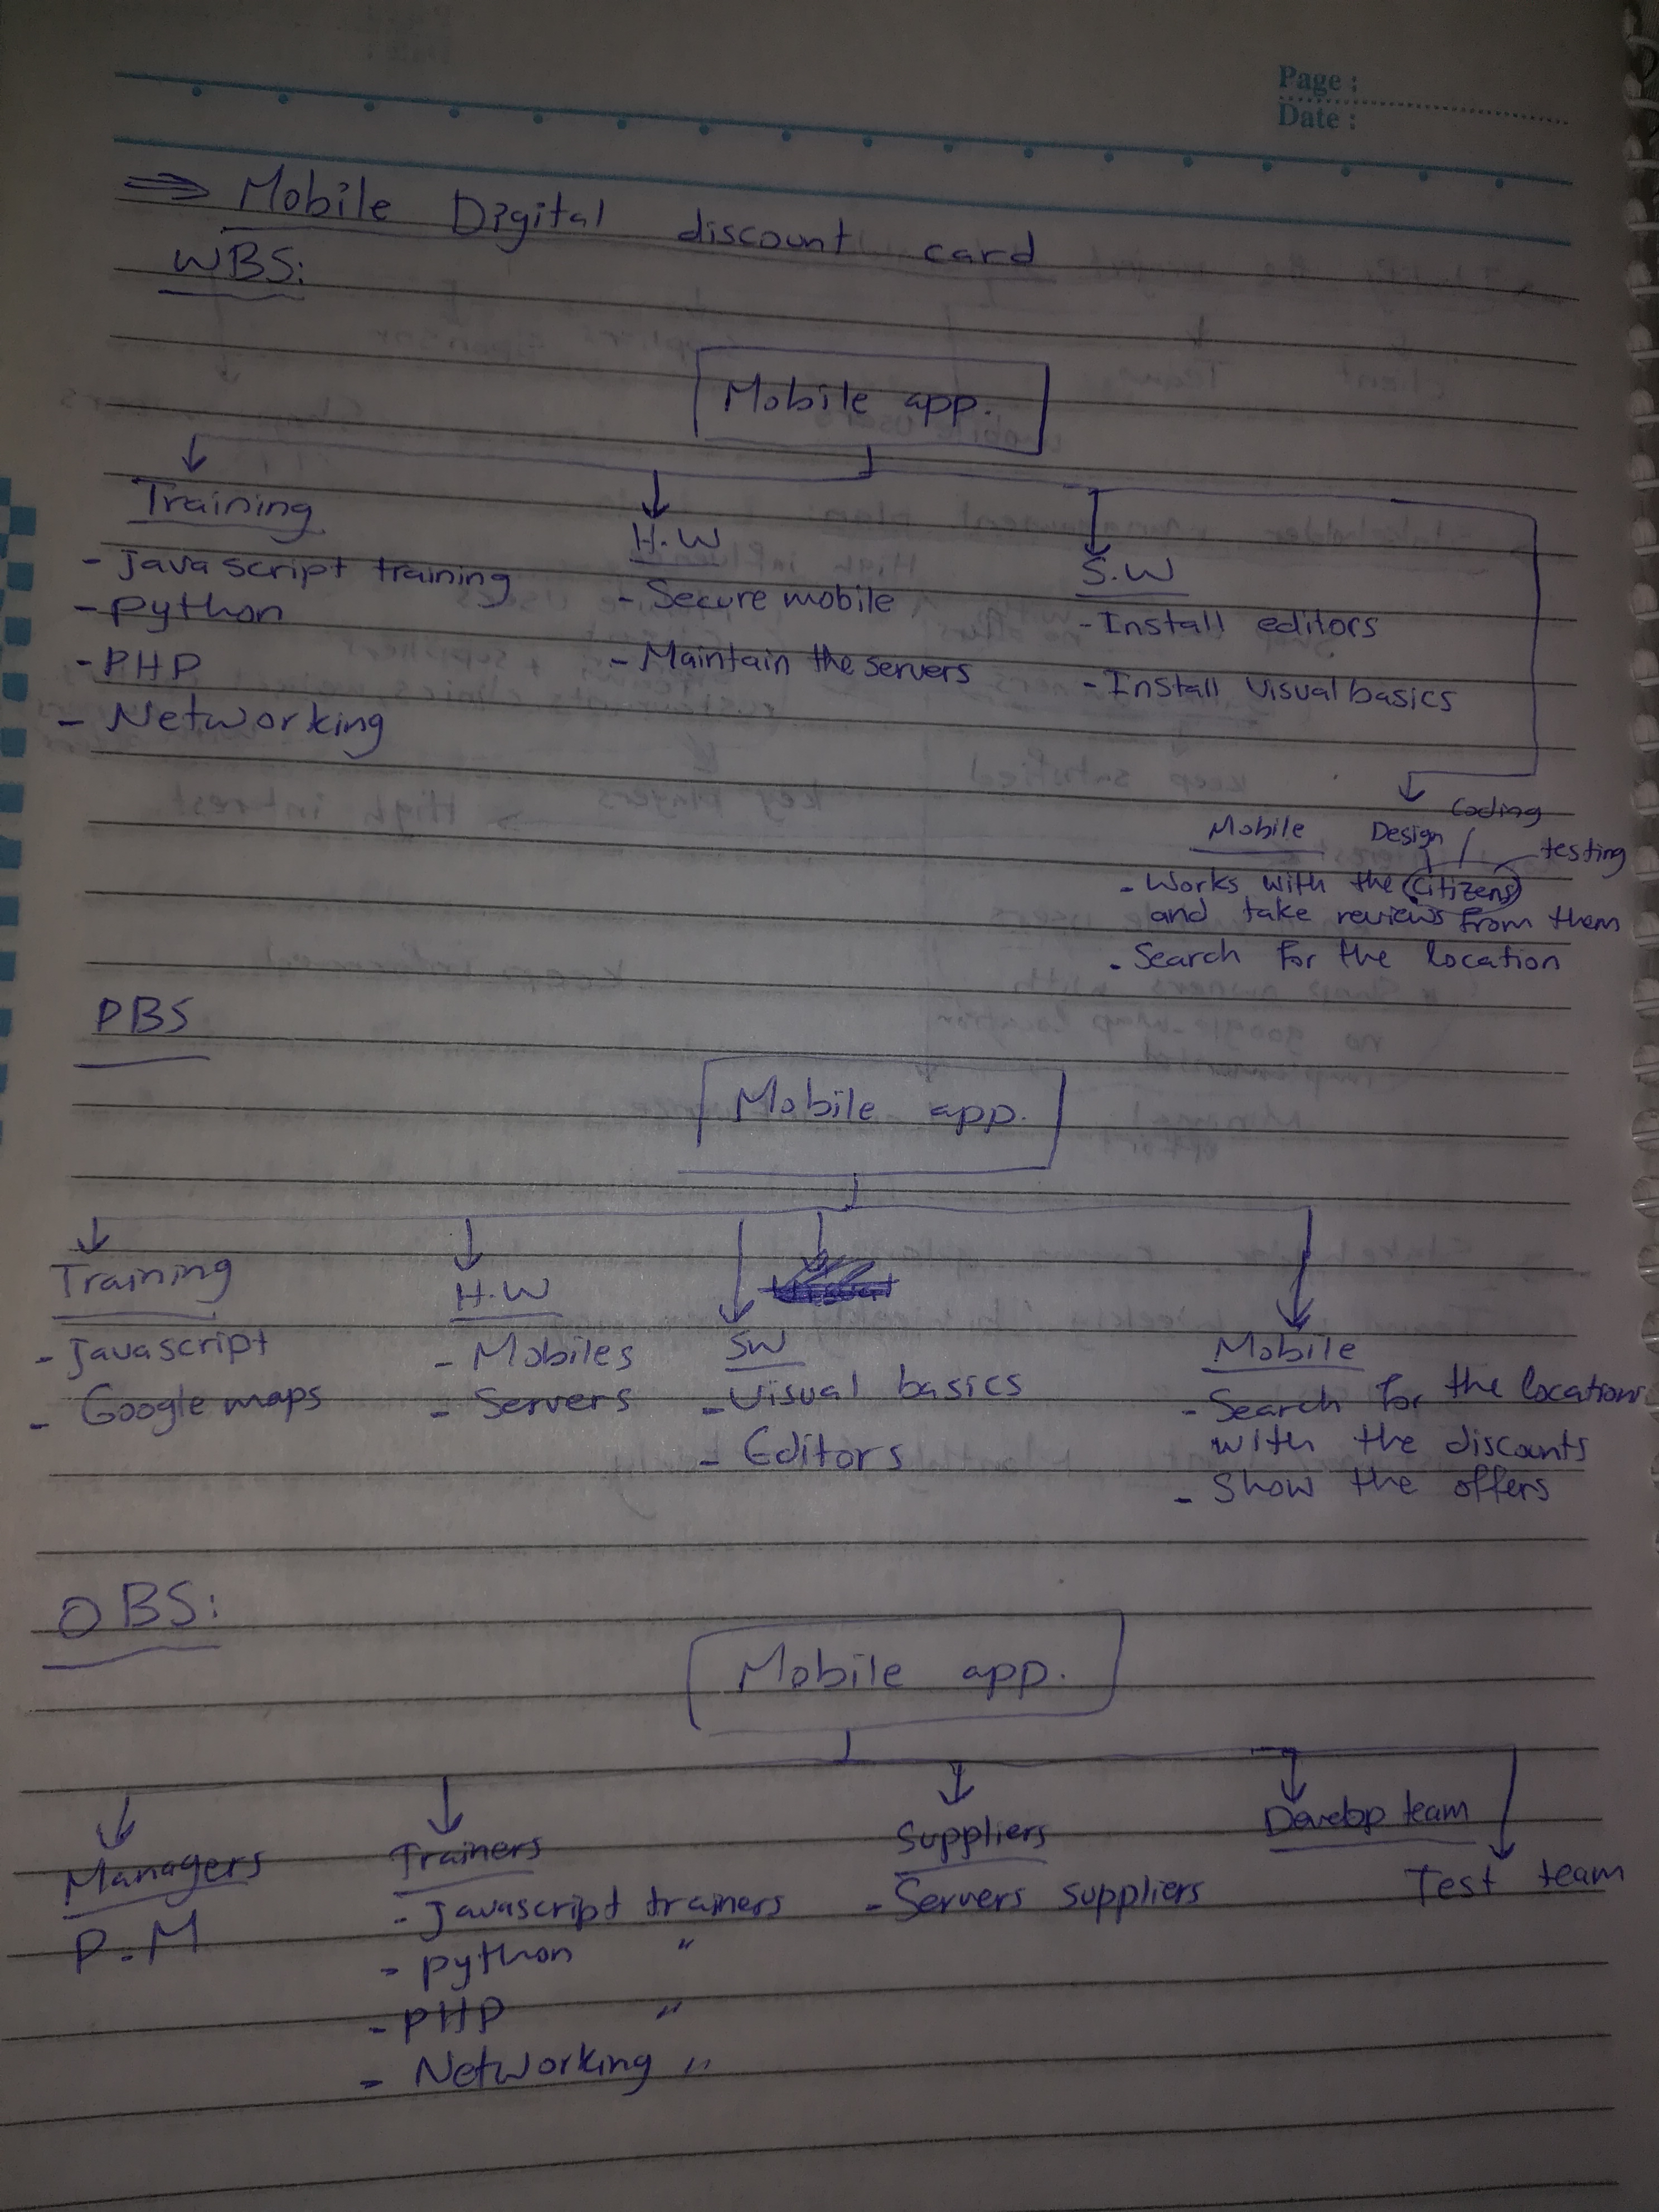 Page :
Date :
⇒ Mobile Digital discount card
WBS:
Mobile app.
Training
- Javascript training
- Python
- PHP
- Networking
H.W
- Secure mobile
- Maintain the servers
S.W
- Install editors
- Install Visual basics
Mobile Design Coding testing
- Works with the citizens
and take reviews from them
- Search for the location
PBS
Mobile app.
Training
- Javascript
- Google maps
H.W
- Mobiles
- Servers
SW
- Visual basics
- Editors
Mobile
- Search for the locations
with the discounts
- Show the offers
OBS:
Mobile app.
Managers
P.M
Trainers
- Javascript trainers
- Python "
- PHP "
- Networking "
Suppliers
- Servers suppliers
Develop team
Test team